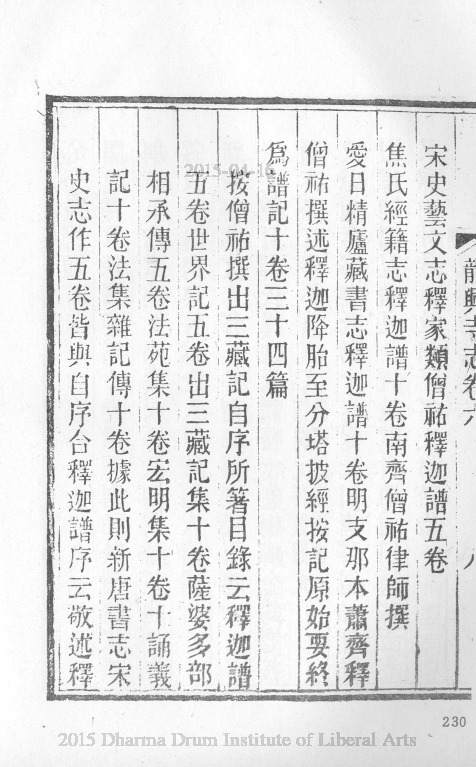 龍興寺志卷六
八
宋史藝文志釋家類僧祐釋迦譜五卷
焦氏經籍志釋迦譜十卷南齊僧祐律師撰
愛日精廬藏書志釋迦譜十卷明支那本蕭齊釋
僧祐撰述釋迦降胎至分塔披經按記原始要終
爲譜記十卷三十四篇
按僧祐撰出三藏記自序所著目錄云釋迦譜
五卷世界記五卷出三藏記集十卷薩婆多部
相承傳五卷法苑集十卷宏明集十卷十誦義
記十卷法集雜記傳十卷據此則新唐書志宋
史志作五卷皆與自序合釋迦譜序云敬述釋
2015-04-16
230
2015 Dharma Drum Institute of Liberal Arts